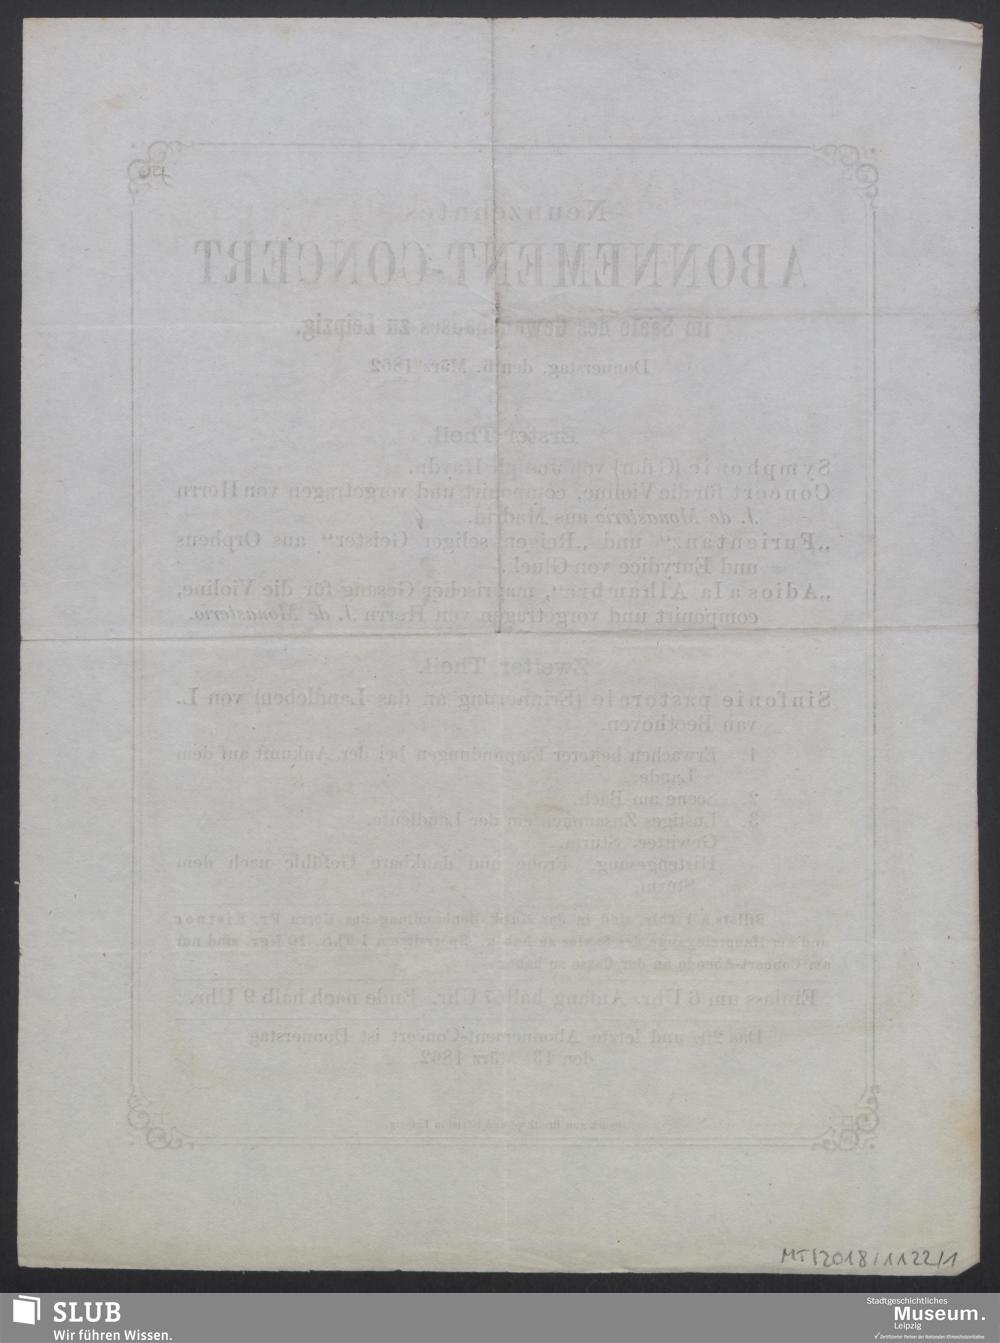 Neunzehntes
ABONNEMENT-CONCERT
im Saale des Gewandhauses zu Leipzig.
Donnerstag, den 6. März 1862.
Erster Theil.
Symphonie (G dur) von Joseph Haydn.
Concert für die Violine, componirt und vorgetragen von Herrn
J. de Monasterio aus Madrid.
„Furientanz“ und „Reigen seliger Geister“ aus Orpheus
und Eurydice von Gluck.
„Adios a la Alhambra“, maurischer Gesang für die Violine,
componirt und vorgetragen von Herrn J. de Monasterio.
Zweiter Theil.
Sinfonie pastorale (Erinnerung an das Landleben) von L.
van Beethoven.
1. Erwachen heiterer Empfindungen bei der Ankunft auf dem
Lande.
2. Scene am Bach.
3. Lustiges Zusammensein der Landleute.
Gewitter. Sturm.
Hirtengesang. Frohe und dankbare Gefühle nach dem
Sturm.
Billets à 1 Thlr. sind in der Musikalienhandlung des Herrn Fr. Kistner
und am Haupteingange des Saales zu haben. Sperrsitze à 1 Thlr. 10 Ngr. sind nur
am Concert-Abende an der Casse zu haben.
Einlass um 6 Uhr. Anfang halb 7 Uhr. Ende nach halb 9 Uhr.
Das 20te und letzte Abonnement-Concert ist Donnerstag
den 13. März 1862.
MT/2018/1122/1
SLUB
Wir führen Wissen.
Stadtgeschichtliches
Museum.
Leipzig
✓ Zertifizierter Partner der Nationalen Klimaschutzinitiative